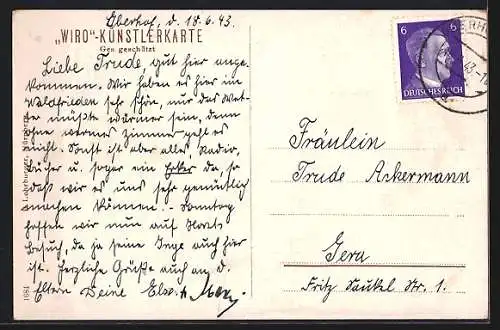 Oberhof, d. 18.6.43.
„WIRO"-KÜNSTLERKARTE
Ges. geschützt
Liebe Trude, gut hier ange-
kommen. Wir haben es hier im
Waldfrieden sehr schön, nur das Wet-
ter müßte wärmer sein, denn
ohne warmes Zimmer geht es
nicht. Sonst ist aber alles, Radio,
Bücher u. sogar ein Erker da, so
daß wir es uns sehr gemütlich
machen können. - Sonntag
hoffen wir nun auf Horsts
Besuch, da ja seine Inge auch hier
ist. Herzliche Grüße auch an d.
Eltern Deine Else
6 6
DEUTSCHES REICH
43-1
Fräulein
Trude Ackermann
Gera
Fritz Sauckel Str. 1.
1891
Nürnberg